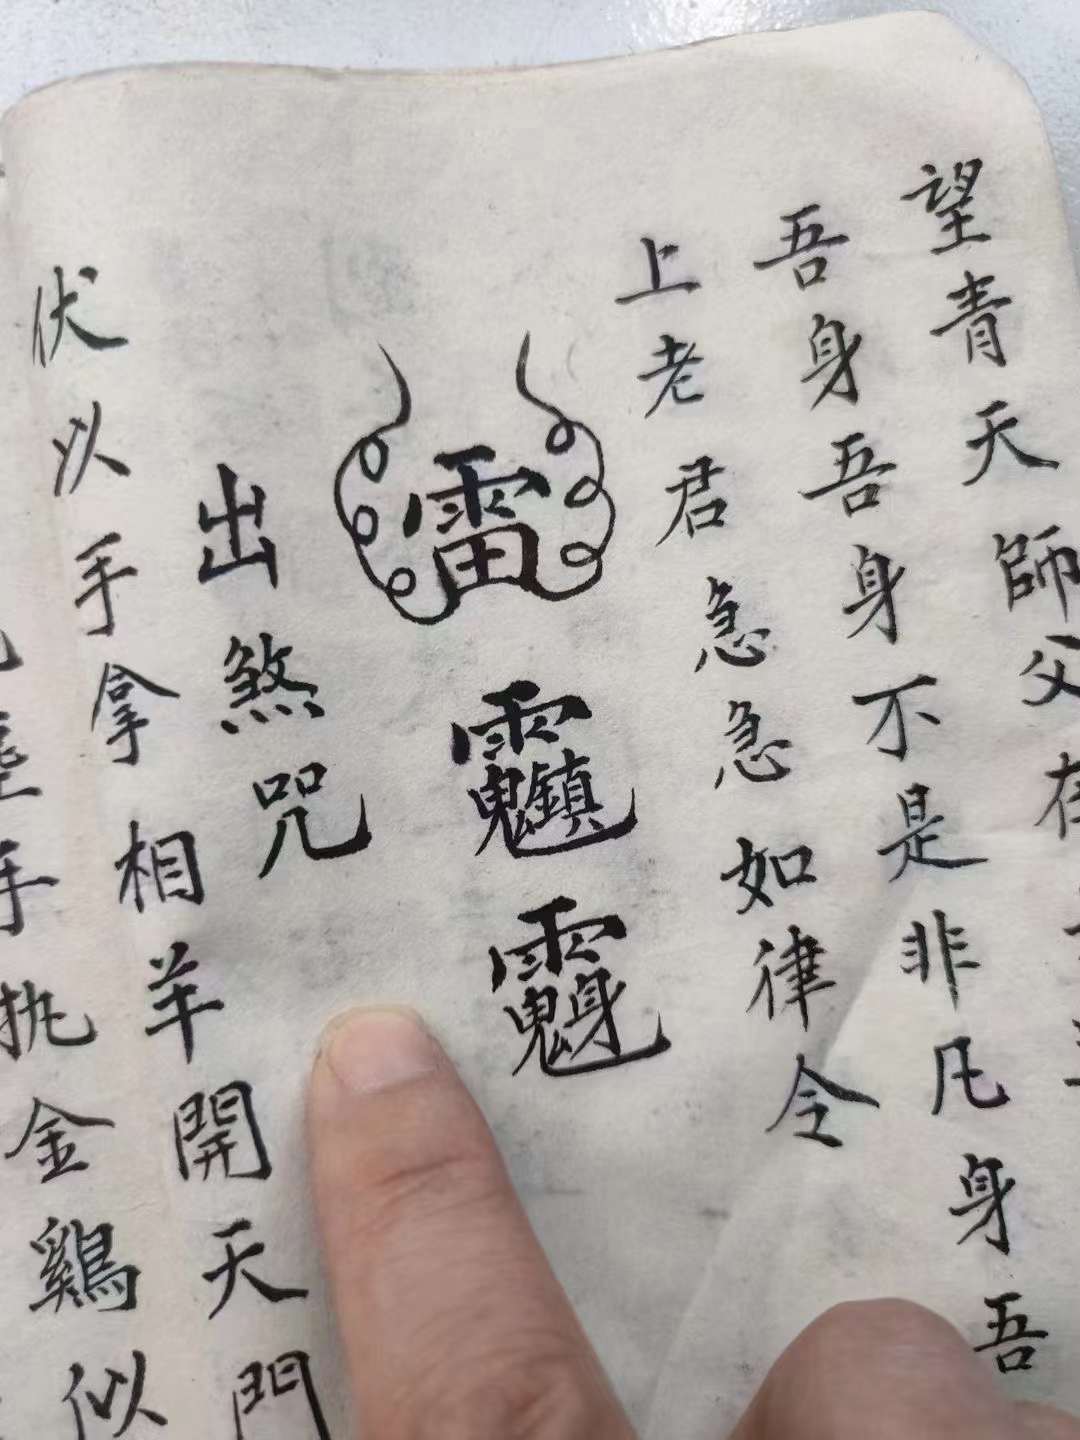 望青天師父在
吾身吾身不是非凡身吾
上老君急急如律令
雷
出煞咒
伏以手拿相羊開天門
手执金鷄似